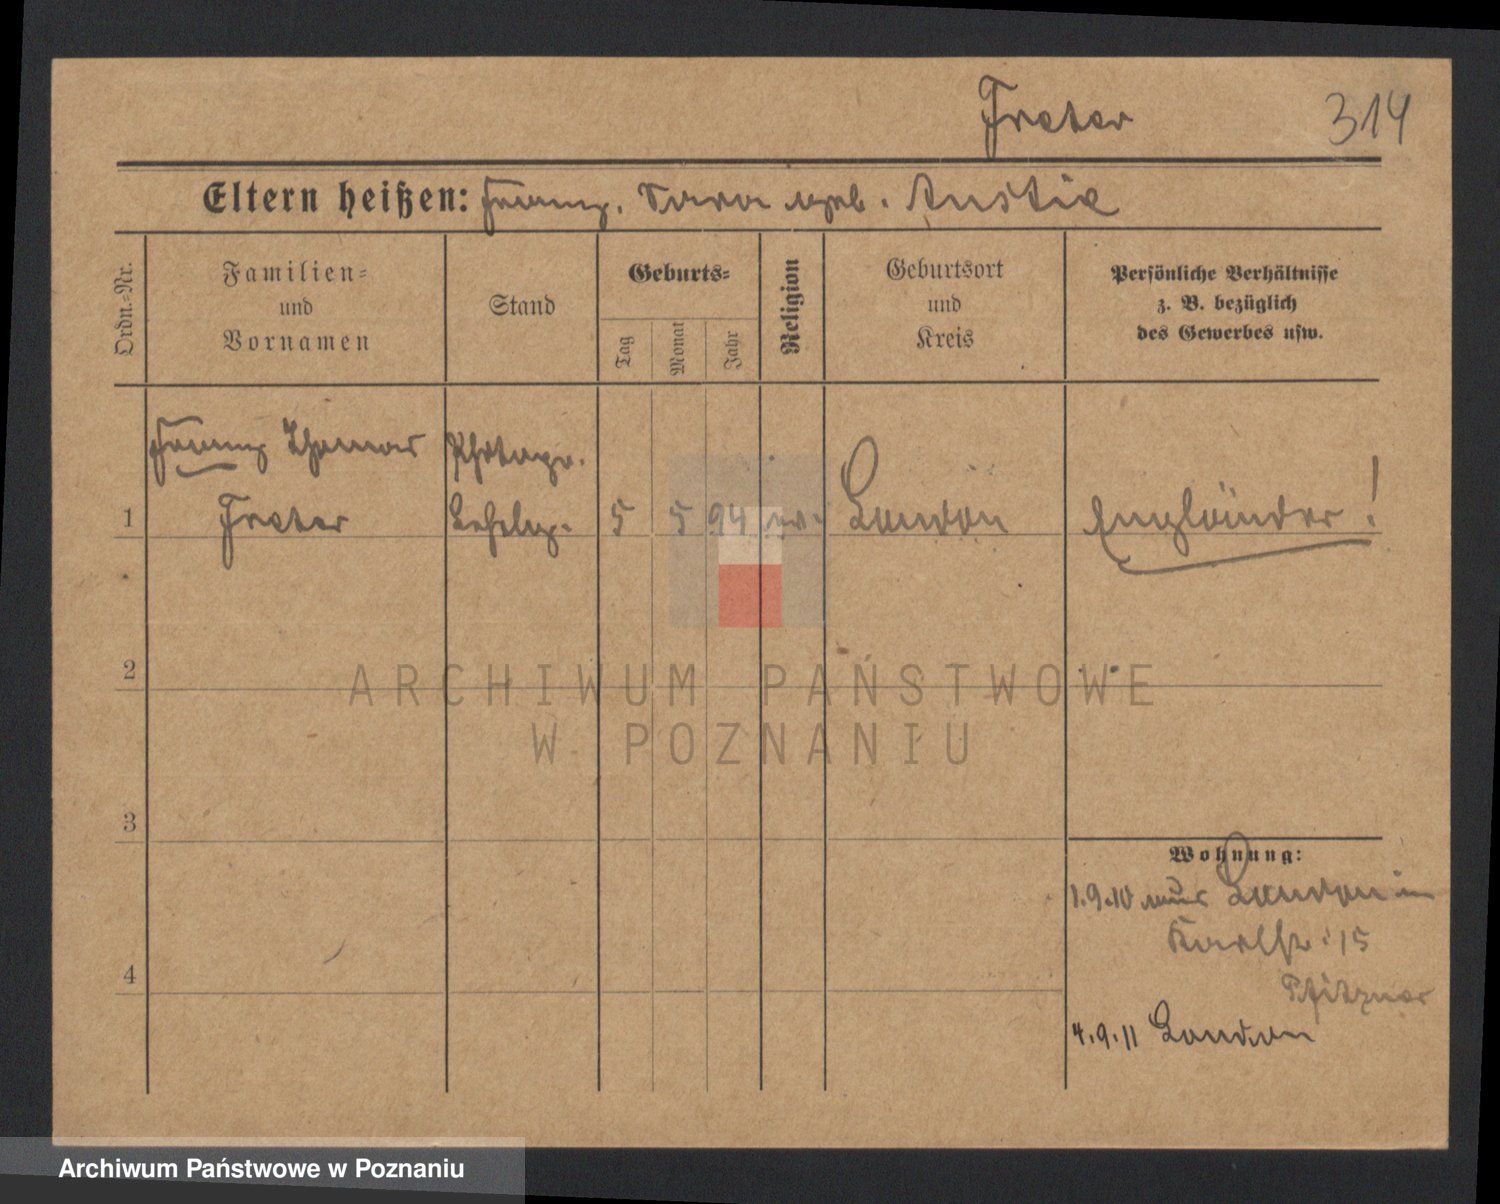 Freter 314
Eltern heißen: Franz, Sara geb. Austie
Ordn.-Nr.
Familien-
und
Vornamen
Stand
Geburts-
Tag
Monat
Jahr
Religion
Geburtsort
und
Kreis
Persönliche Verhältnisse
z. B. bezüglich
des Gewerbes usw.
Franz Thomas Photogr.
1 Freter Lehrlg. 5 5 94 ev. London Engländer!
2
3
4
Wohnung:
1.9.10 aus London in
Karlstr. 15
Pfitzner
4.9.11 London
ARCHIWUM PAŃSTWOWE
W POZNANIU
Archiwum Państwowe w Poznaniu